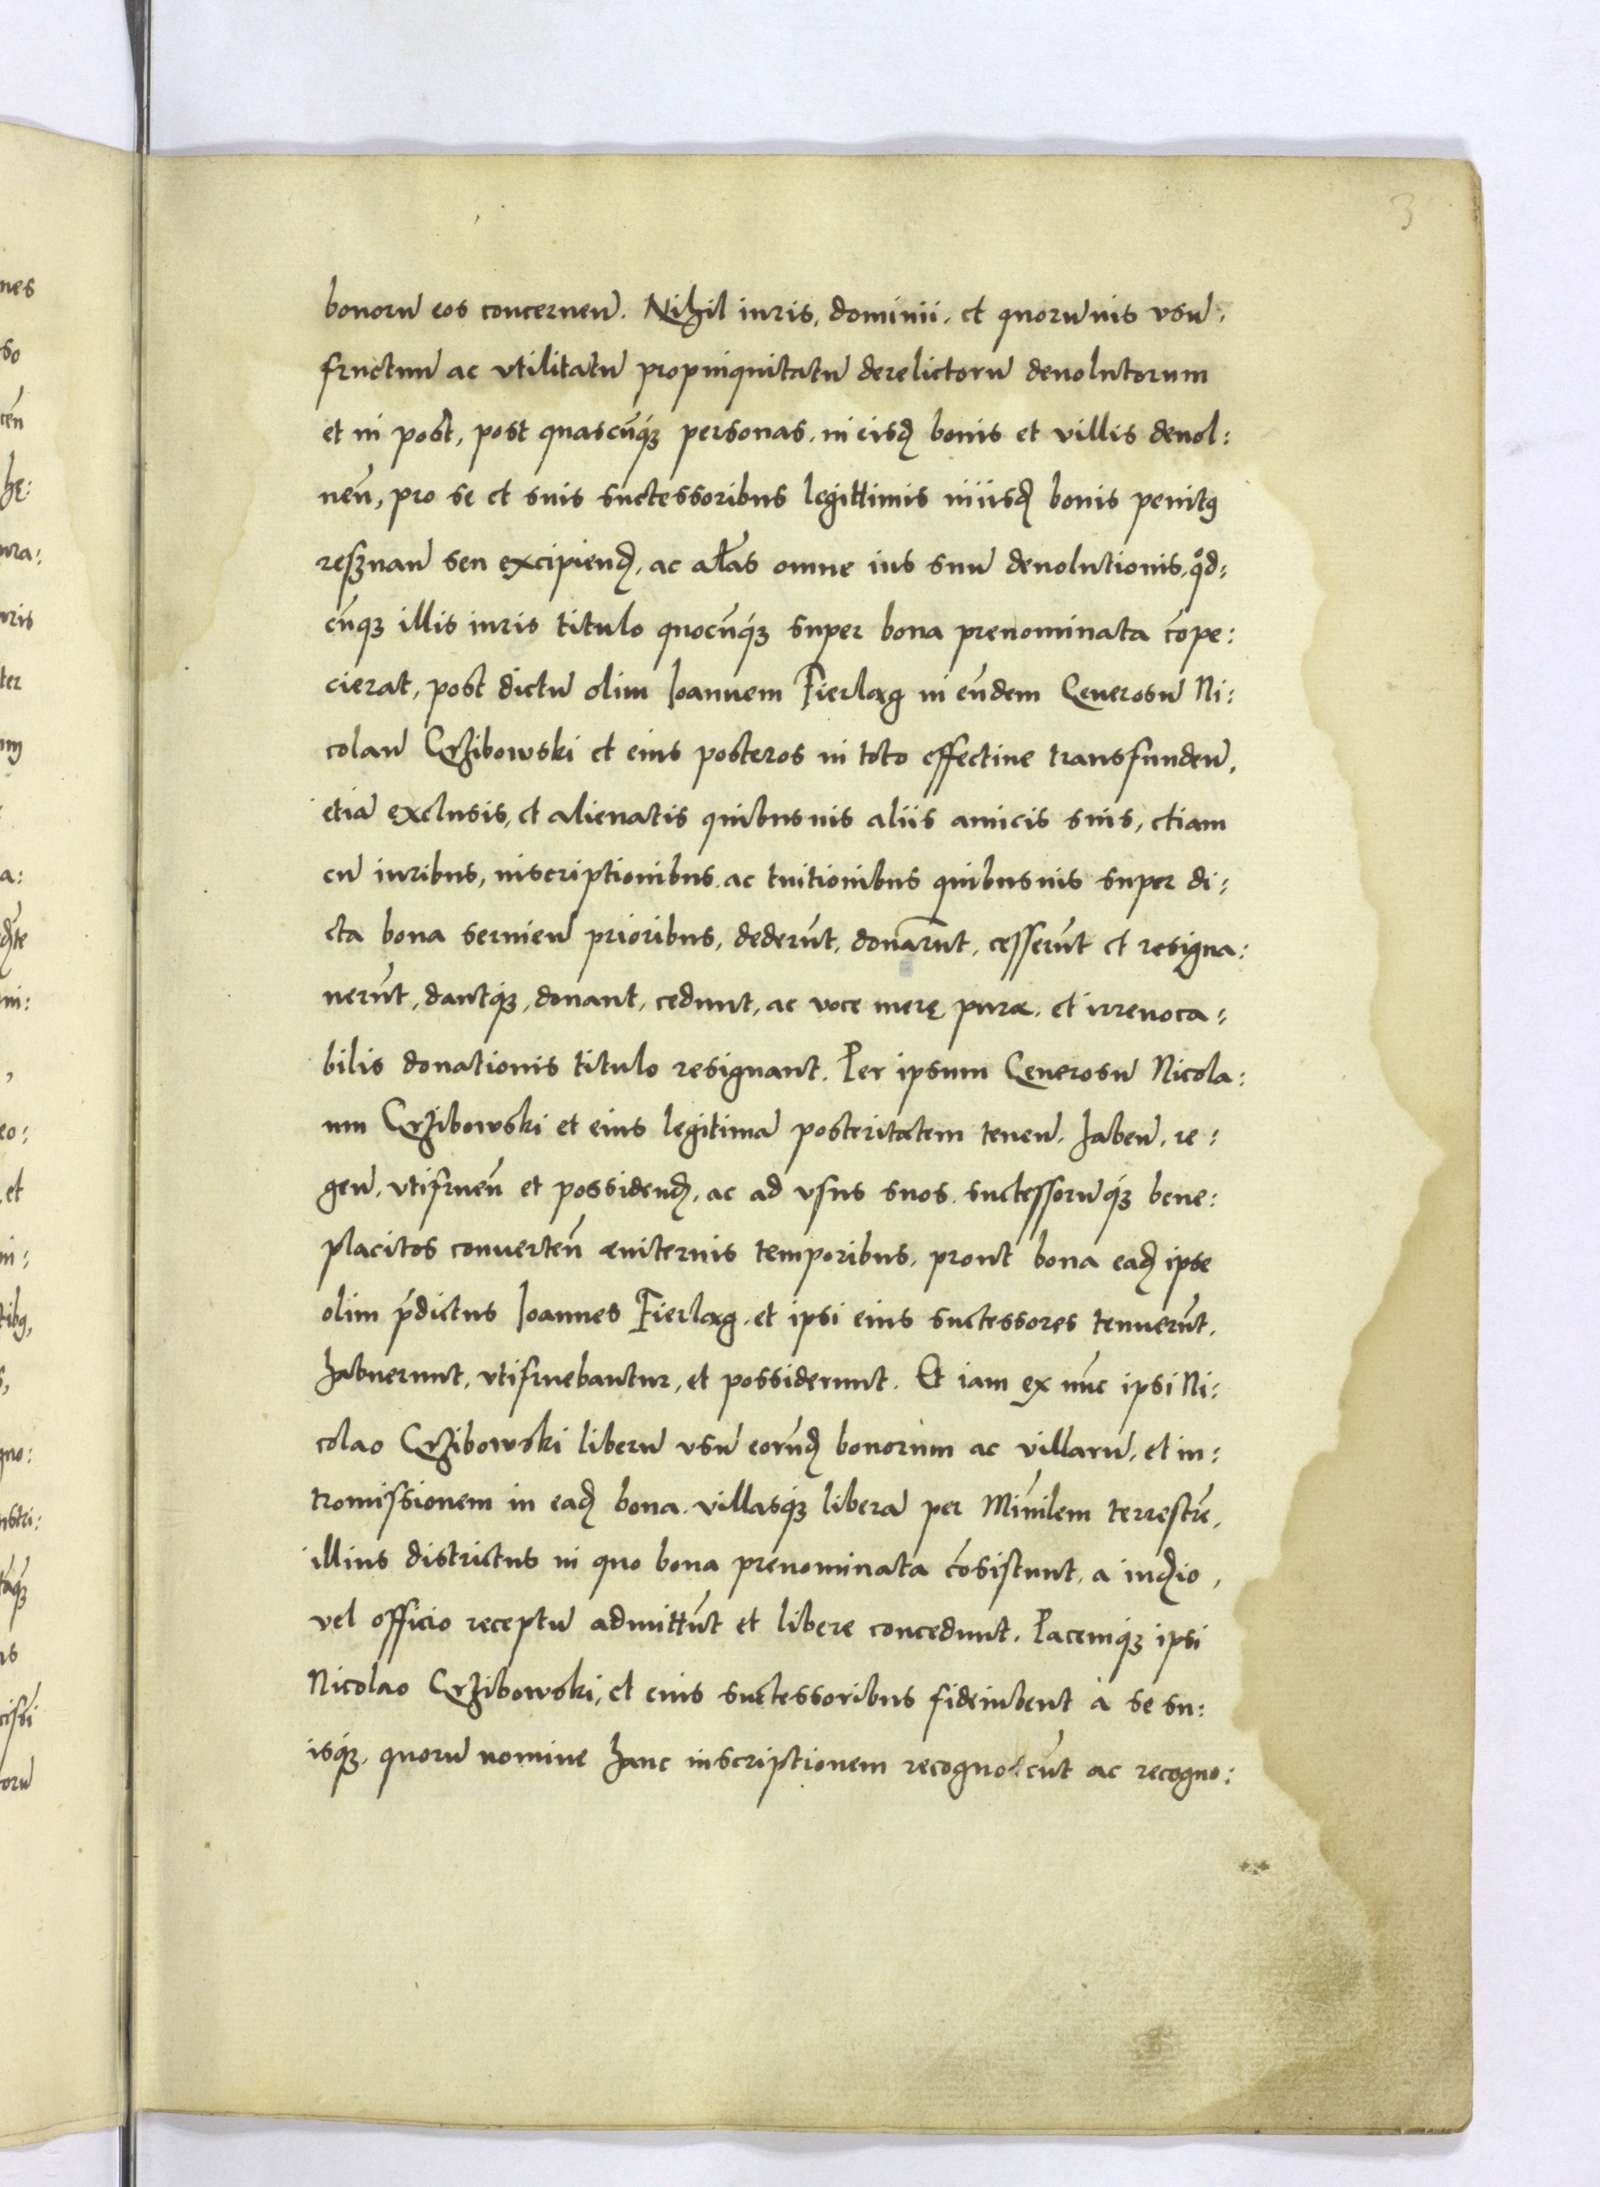 3
bonorū eos concernen̄. Nihil iuris, dominii, et quorumuis vsū,
fructuū ac vtilitatū propinquitatū derelictorū deuolutorum
et in post, post quascūq3 personas, in eisd bonis et villis deuol:
uen̄, pro se et suis successoribus legittimis in iisd bonis penitus
resznan̄ seu excipiend, ac alias omne ius suū deuolutionis, qd:
cūq3 illis iuris titulo quocūq3 super bona prenominata cōpe:
cierat, post dictū olim Ioannem Fierlag in eūdem Generosū Ni:
colaū Grzibowski et eius posteros in toto effectiue transfunden̄,
etiā exclusis, et alienatis quibusuis aliis amicis suis, etiam
cū iuribus, inscriptionibus, ac tuitionibus quibusuis super di:
cta bona seruien̄ prioribus, dederūt, donarūt, cesserūt et resigna:
uerūt, dantq3, donant, cedunt, ac voce merę purae, et irreuoca:
bilis donationis titulo resignant. Per ipsum Generosū Nicola:
um Grzibowski et eius legitimā posteritatem tenen̄, haben̄, re:
gen̄, vtifruen̄ et possidend, ac ad vsus suos, successorūq3 bene:
placitos conuerten̄ aeuiternis temporibus, prout bona ead ipse
olim p̄dictus Ioannes Fierlag, et ipsi eius successores tenuerūt,
habuerunt, vtifruebantur, et possiderunt. Et iam ex nūc ipsi Ni:
colao Grzibowski liberū vsū eorūd bonorum ac villarū, et in:
tromissionem in ead bona, villasq3 liberā per Minilem terrestrē,
illius districtus in quo bona prenominata cōsistunt, a iudio,
vel officio receptū admittūt et libere concedunt. Pacemq3 ipsi
Nicolao Grzibowski, et eius successoribus fideiubent à se su:
isq3, quorū nomine hanc inscriptionem recognoscūt ac recogno: